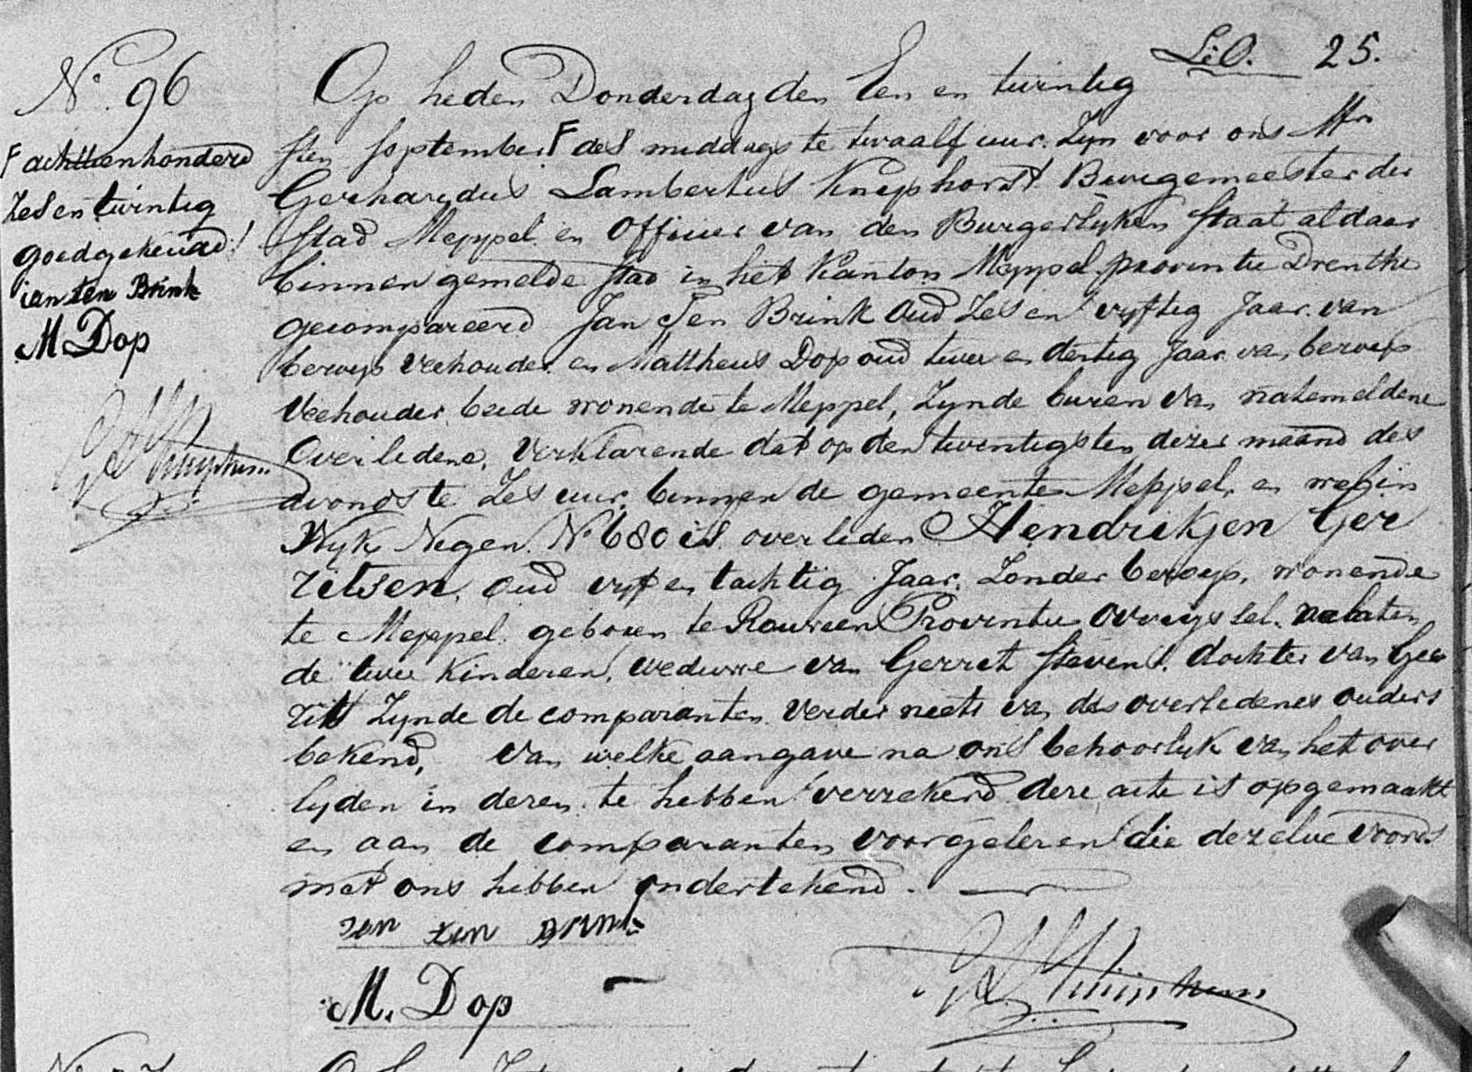 Lio. 25.
No. 96
Op heden Donderdag den Een en twintig
sten September F des middags te twaalf uur. Zyn voor ons Mr.
F achttienhonderd
zes en twintig
goedgekeurd!
jan ten Brink
M Dop
Gerhardus Lambertus Knijphorst Burgemeester der
Stad Meppel en Officier van den Burgerlyken Staat aldaar
binnen gemelde stad in het Kanton Meppel provintie Drenthe
gecompareerd Jan Ten Brink oud zes en vyftig Jaar van
beroep veehouder en Mattheus Dop oud twee en dertig Jaar van beroep
Veehouder beide wonende te Meppel, Zynde buren van natemeldene
Overledene, Verklarende dat op den twintigsten dezer maand des
avonds te Zes uur binnen de gemeente Meppel, en wel in
Wyk Negen No 680 is overleden Hendrikjen Ger
ritsen, oud vyf en tachtig Jaar, Zonder beroep, wonende
te Meppel geboren te Rouveen Provintie Overyssel. nalaten
de twee Kinderen, weduwe van Gerret Stevens. dochter van Ger
rit Zynde de comparanten verder niets van des overledenes ouders
bekend, Van welke aangave na ons behoorlyk van het over
lyden in dezen te hebben verzekerd deze acte is opgemaakt
en aan de comparanten voorgelezen die dezelve voords
met ons hebben ondertekend.
jan ten Brink
M. Dop